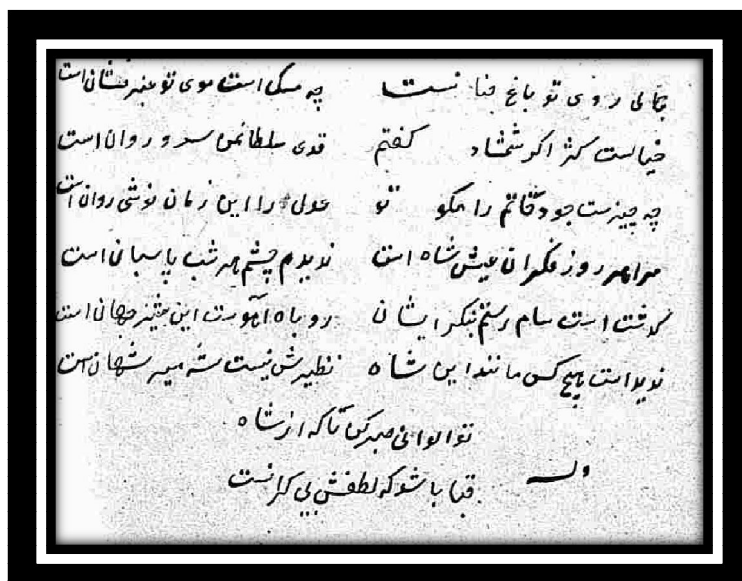 بجای روی تو باغ فنا نیست چه مسک است موی تو عنبر نشان است
خیالست کژ اگر شمشاد گفتم قدی سلطانمن سرو روان است
چه چیزست جود حاتم را مگو تو عدلی را این زمان نوشی روان است
مرا هر روز فکر آن عیش شاه است ندیدم چشم هر شب پاسبان است
گذشت است سام رستم بنگر ایشان روباه آهوست این شیر جهان است
ندیداست هیچ کس مانند این شاه نظیرش نیست شه میر شهان است
تو الوانی صبر کن تا که از شاه
ول
قبا باشد که لطفش بی کرانست